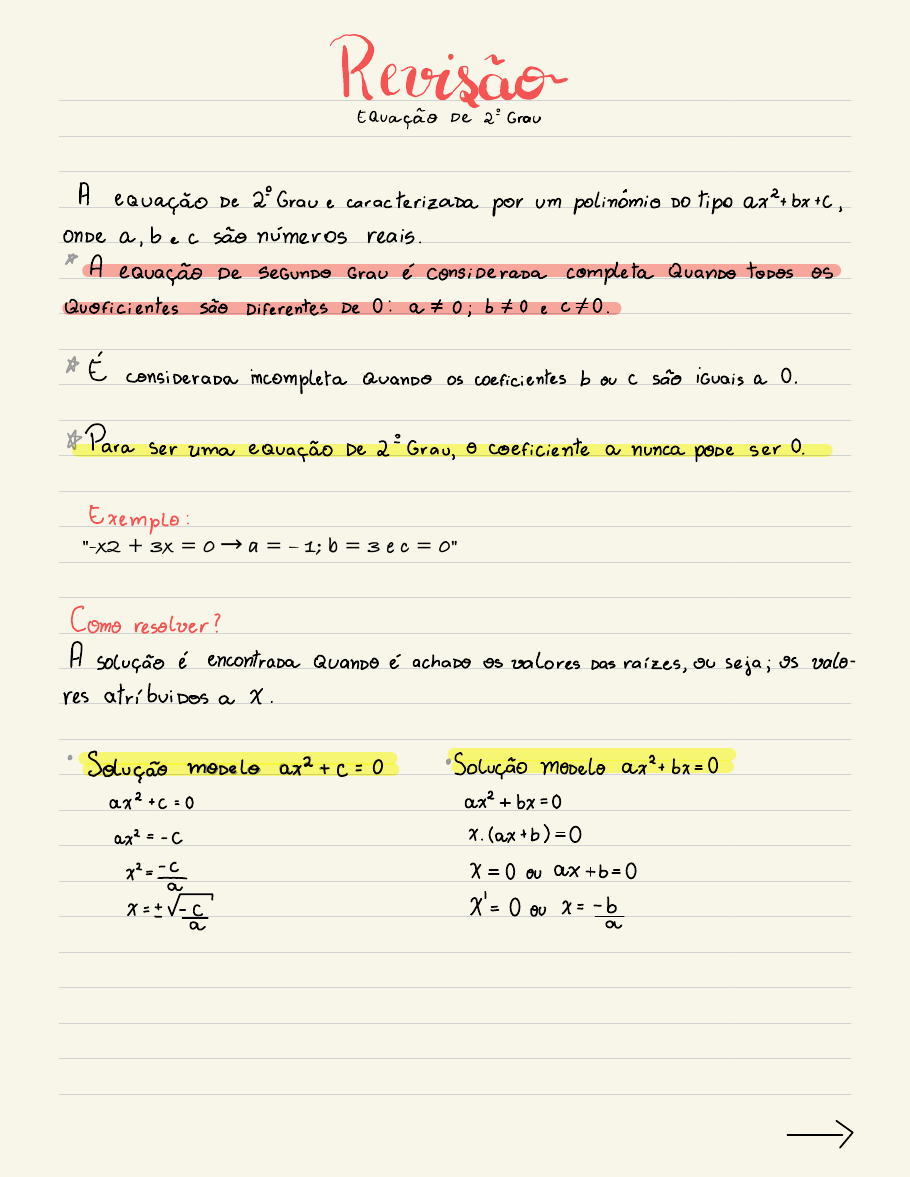 Revisão
Equação de 2º Grau
A equação de 2º Grau e caracterizada por um polinômio do tipo ax²+bx+c,
onde a, b e c são números reais.
A equação de segundo Grau é considerada completa quando todos os
quoficientes são diferentes de 0: a ≠ 0; b ≠ 0 e c ≠ 0.
É considerada incompleta quando os coeficientes b ou c são iguais a 0.
Para ser uma equação de 2º Grau, o coeficiente a nunca pode ser 0.
Exemplo:
"-x2 + 3x = 0 → a = - 1; b = 3 e c = 0"
Como resolver?
A solução é encontrada quando é achado os valores das raízes, ou seja; os valo-
res atríbuidos a x.
• Solução modelo ax² + c = 0
ax² + c = 0
ax² = -c
x² = -c/a
x = ± √-c/a
• Solução modelo ax² + bx = 0
ax² + bx = 0
x.(ax+b) = 0
x = 0 ou ax + b = 0
x' = 0 ou x = -b/a